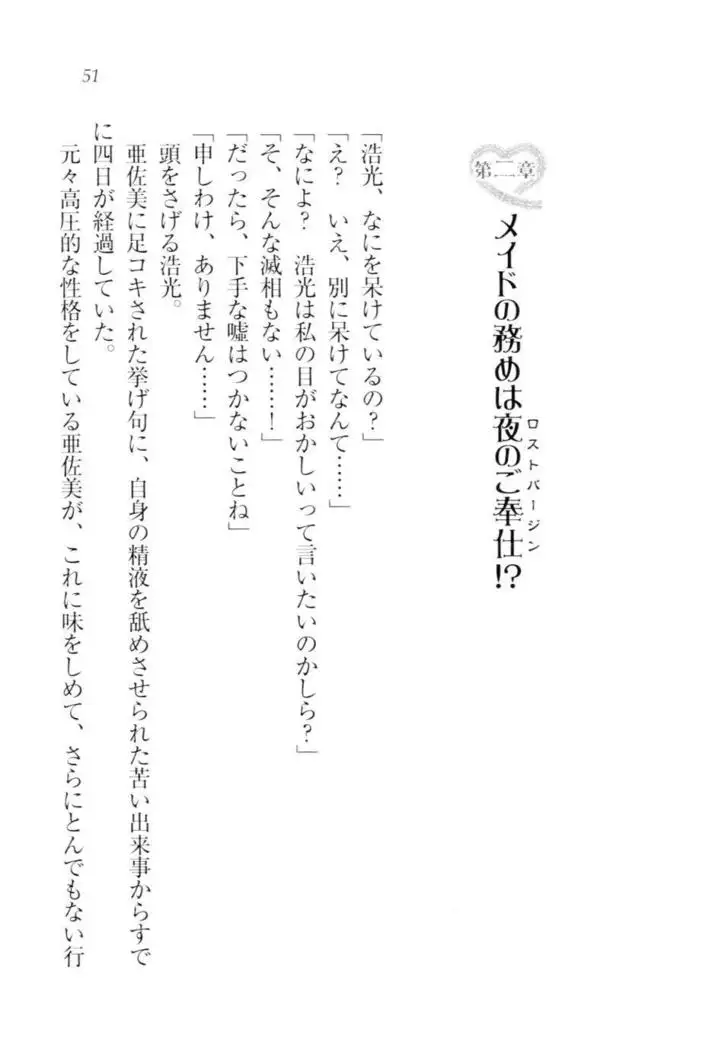 51
第二章
メイドの務めは夜のご奉仕!?
ロストバージン
「浩光、なにを呆けているの？」
「え？　いえ、別に呆けてなんて……」
「なによ？　浩光は私の目がおかしいって言いたいのかしら？」
「そ、そんな滅相もない……！」
「だったら、下手な嘘はつかないことね」
「申しわけ、ありません……」
頭をさげる浩光。
亜佐美に足コキされた挙げ句に、自身の精液を舐めさせられた苦い出来事からすで
に四日が経過していた。
元々高圧的な性格をしている亜佐美が、これに味をしめて、さらにとんでもない行